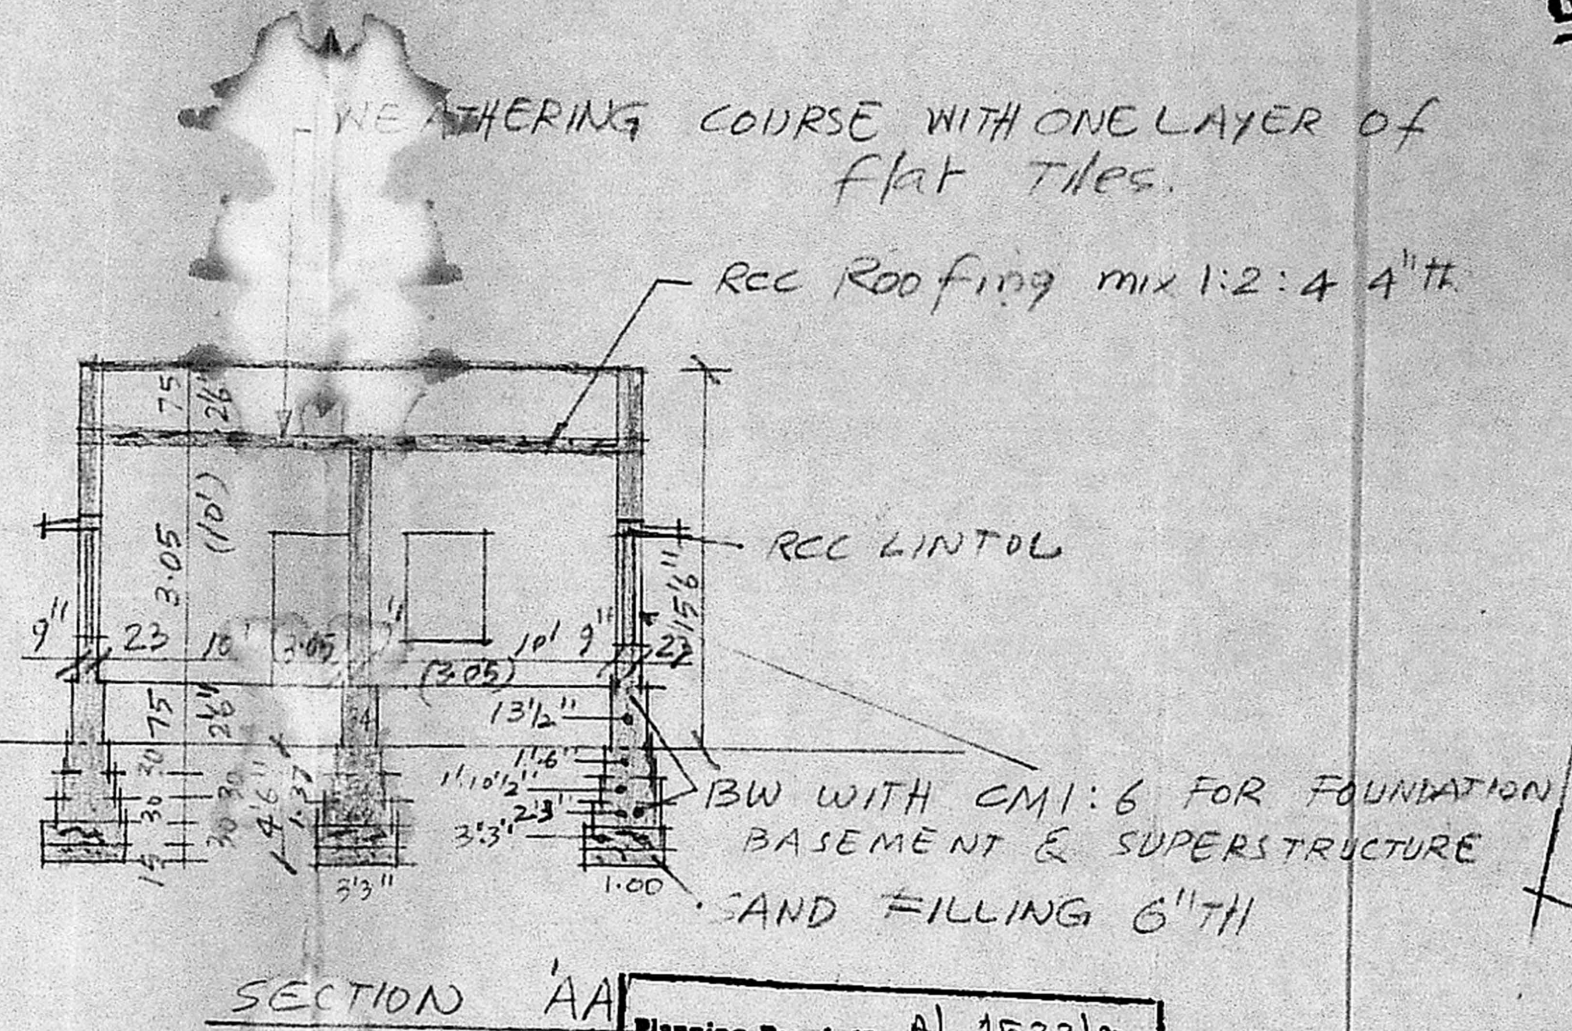 WEATHERING COURSE WITH ONE LAYER Of
flat Tiles.
RCC Roofing mix 1:2:4 4"th
75
2'6"
3.05
(10')
RCC LINTOL
15'6"
9" 23 10' 3.05 9" 10' 9" 23
(3.05)
75
2'6"
13½"
1'.6"
1'.10½"
2'3"
3'3"
30
30
30
30
15
4'6"
1.37
BW WITH CM1:6 FOR FOUNDATION
BASEMENT & SUPERSTRUCTURE
3'3"
1.00
SAND FILLING 6"TH
SECTION 'AA